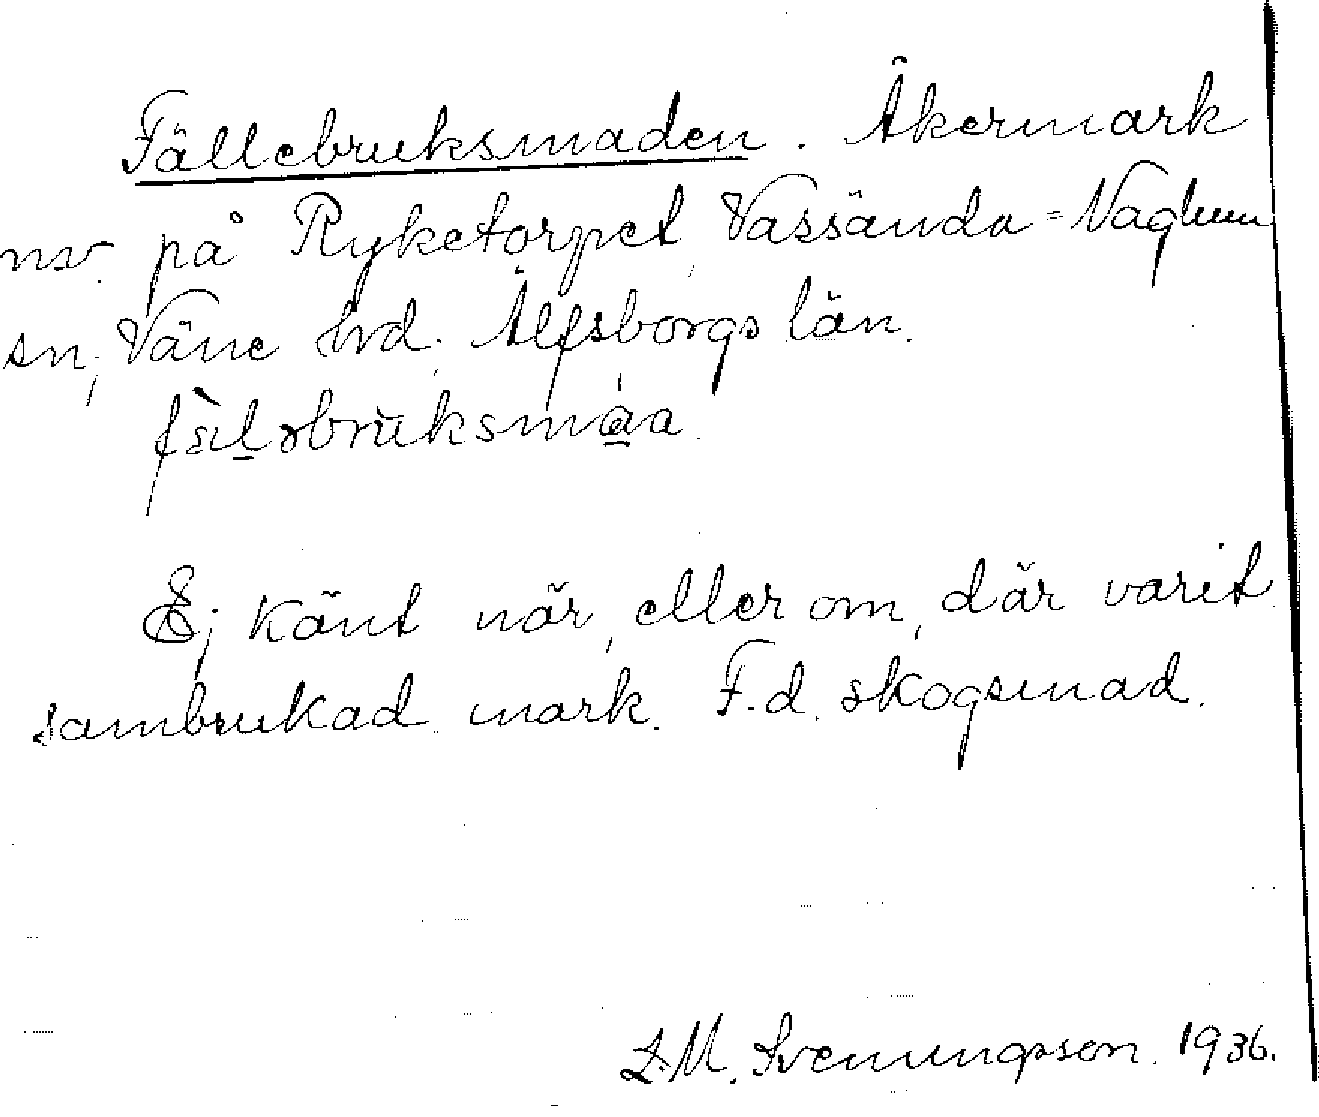 Fällebruksmaden. Åkermark
nv. på Ryketorpet, Vassända=Naglum
sn, Väne hrd. Älfsborgs län.
Ej känt när, eller om, där varit
sambrukad mark. F.d. skogsmad.
L.M. Svenungsson. 1936.